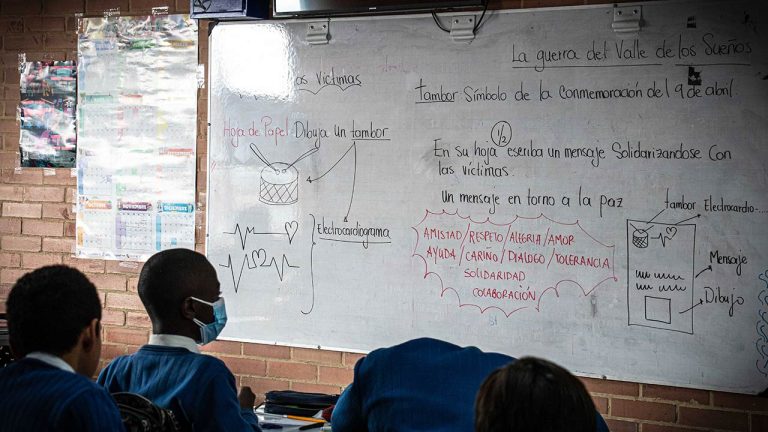 La guerra del Valle de los Sueños
los Victimas
tambor: Símbolo de la Conmemoración del 9 de abril.
Hoja de Papel Dibuja un tambor
1/2
En su hoja escriba un mensaje Solidarizandose Con
las víctimas.
Un mensaje en torno a la paz
Electrocardiograma
AMISTAD/RESPETO/ALEGRIA/AMOR
AYUDA/CARIÑO/DIALOGO/TOLERANCIA
SOLIDARIDAD
COLABORACIÓN
tambor
Electrocardio-...
Mensaje
Dibujo
NOVIEMBRE
DICIEMBRE